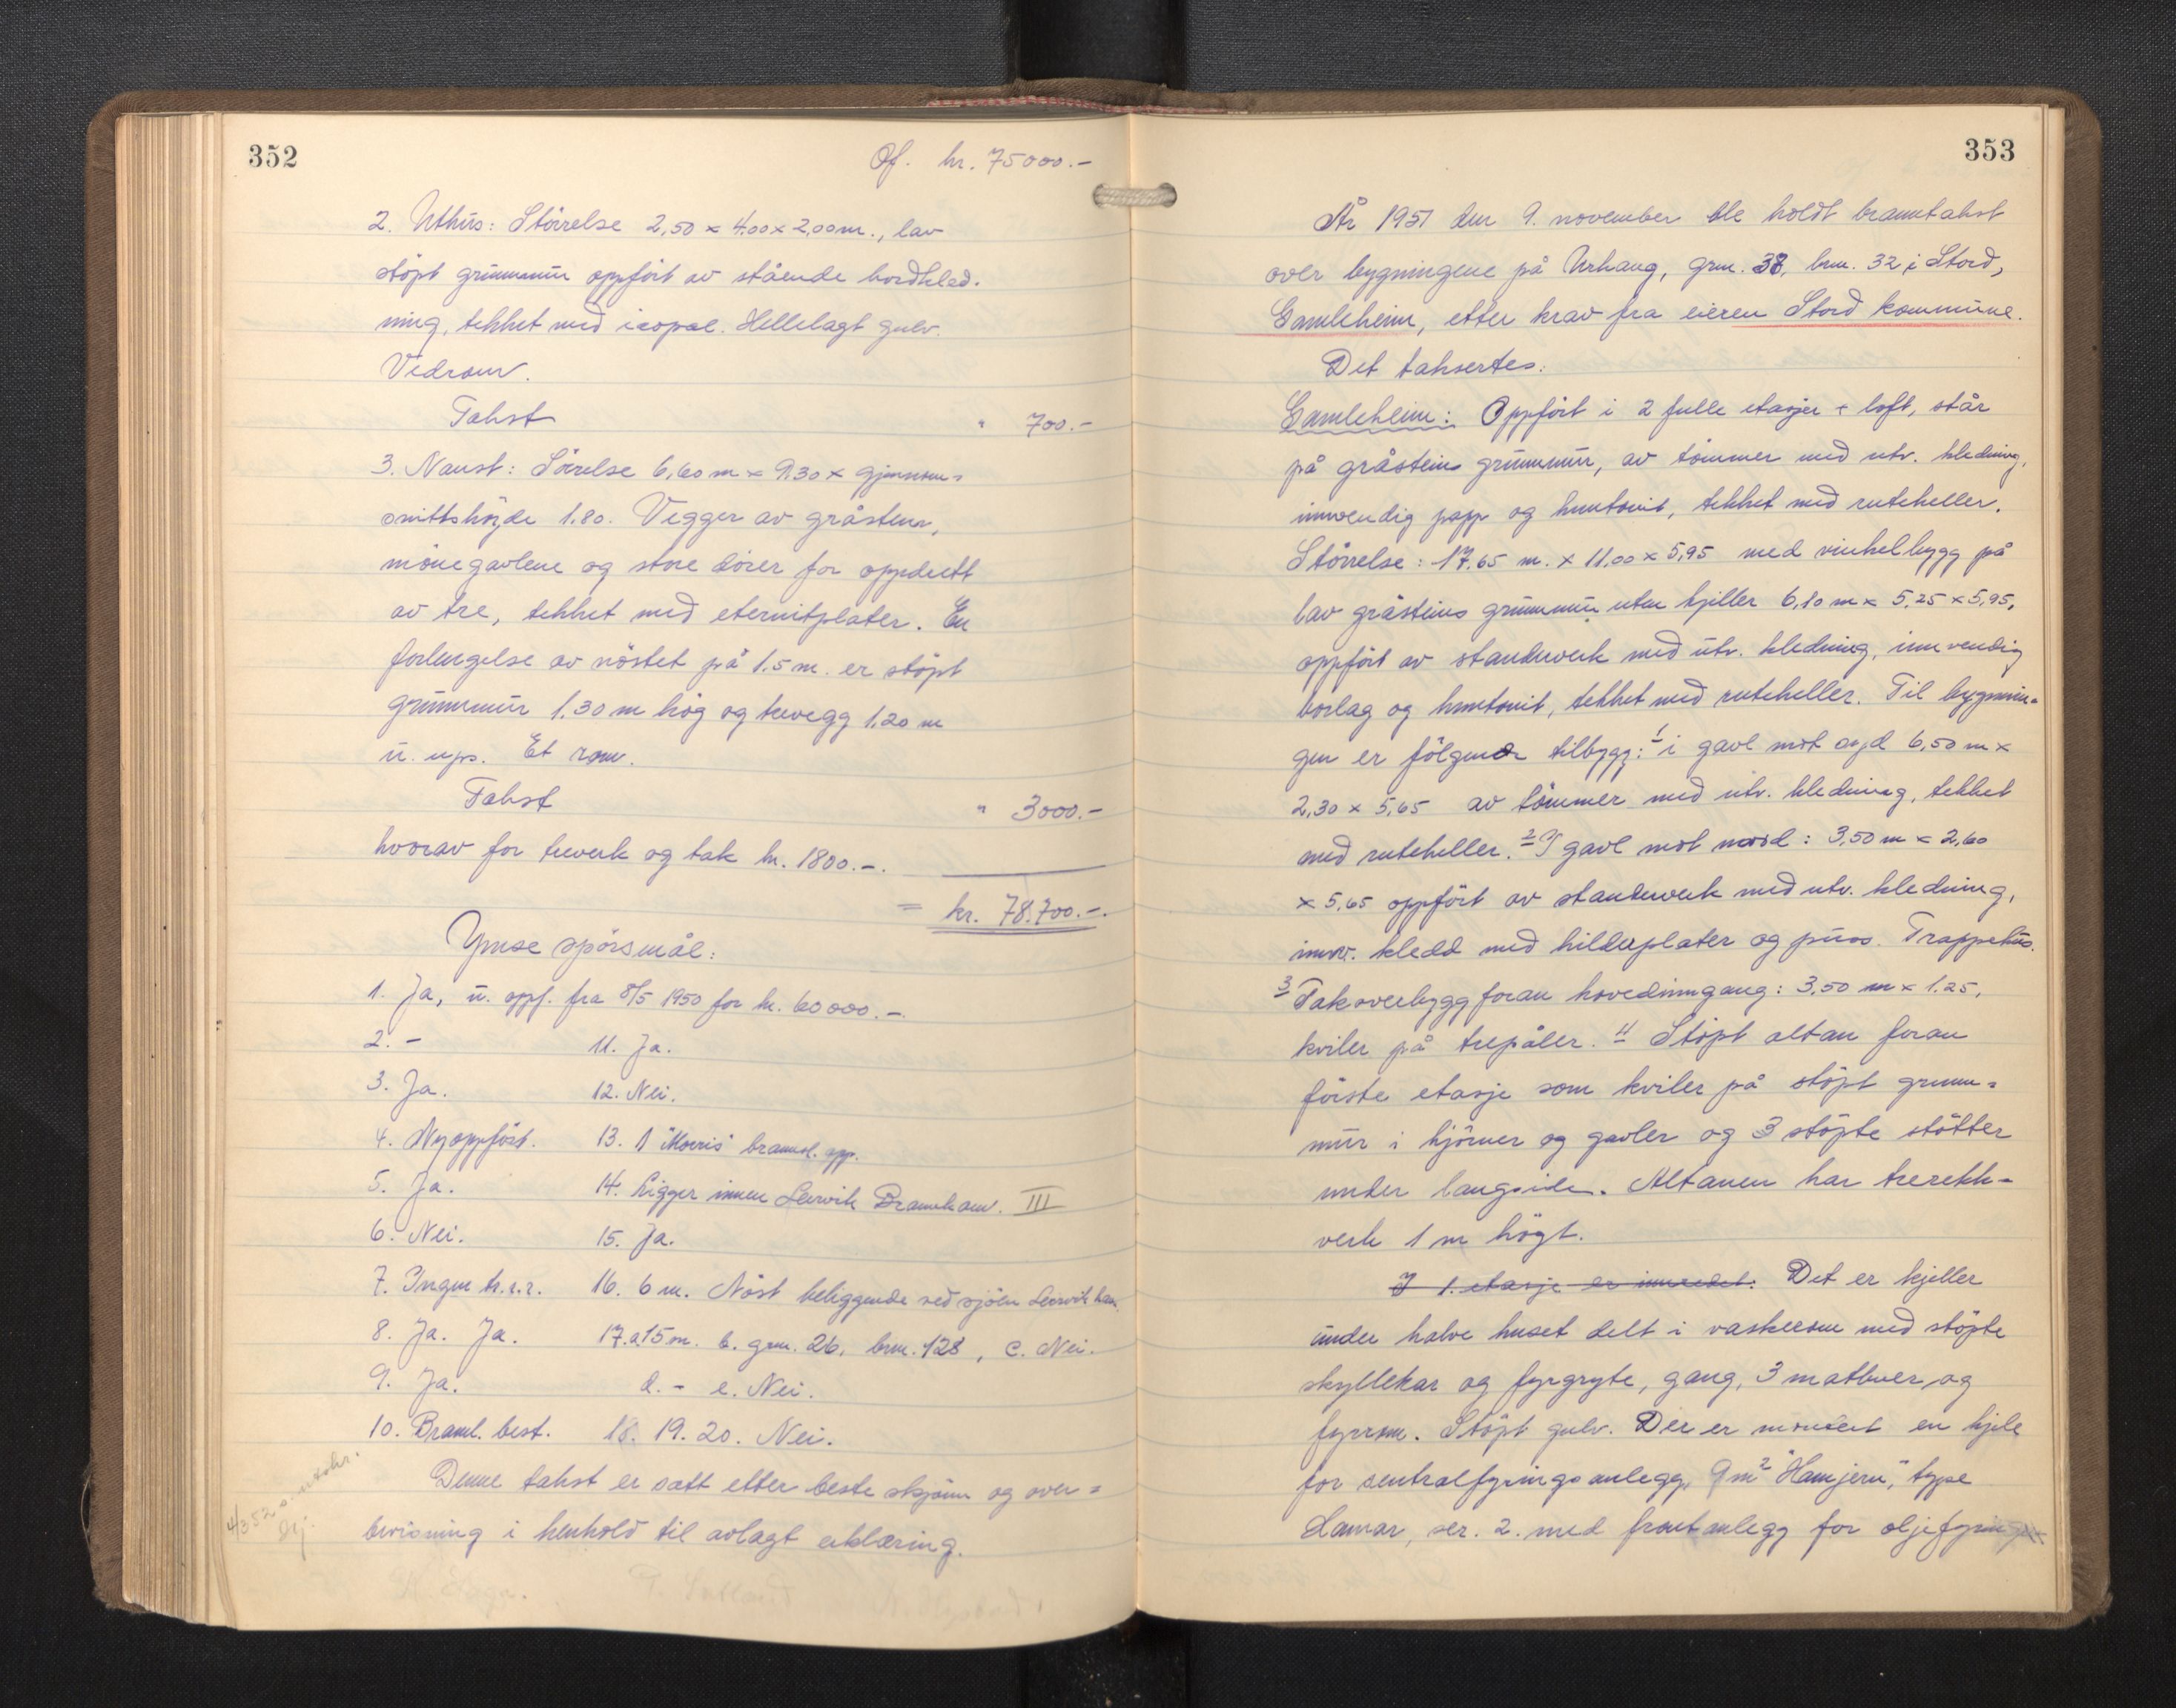 352
Of. kr. 75000.-
2. Uthus: Störrelse 2,50 × 4.00 × 2,00 m., lav
stöpt grunnmur oppfört av stående bordkled-
ning, tekket med icopal. Hellelagt gulv.
Vedrom.
Takst " 700.-
3. Naust: Sörrelse 6,60 m × 9,30 × gjennom-
snittshöjde 1.80. Vegger av gråstein,
mönegavlene og store dörer for oppdrett
av tre, tekket med eternitplater. En
forlengelse av nöstet på 1.5 m. er stöpt
grunnmur 1.30 m hög og trevegg 1,20 m
u. ups. Et rom.
Takst " 3000.-
hvorav for treverk og tak kr. 1800.-.
= kr. 78.700.-.
Ymse spörsmål:
1. Ja, u. oppf. fra 8/5 1950 for kr. 60000.-.
2. - 11. Ja.
3. Ja. 12. Nei.
4. Nyoppfört. 13. 1 "Morris" brannsl. app.
5. Ja. 14. Ligger innen Leirvik Brannkom. III
6. Nei. 15. Ja.
7. Ingen tr.s.r. 16. 6 m. Nöst beliggende ved sjöen Leirvik
8. Ja. Ja. 17. a. 15 m. b. grn. 26, brn. 128, c. Nei.
9. Ja. d. - e. Nei.
10. Brannl. best. 18. 19. 20. Nei.
Denne takst er satt etter beste skjönn og over-
bevisning i henhold til avlagt erklæring.
4/3 52
353
År 1951 den 9. november ble holdt branntakst
over bygningene på Urhaug, grn. 38, brn. 32 i Stord,
Gamleheim, etter krav fra eieren Stord kommune.
Det taksertes:
Gamleheim: Oppfört i 2 fulle etasjer + loft, står
på gråsteins grunnmur, av tömmer med utv. kledning,
innvendig papp og huntonit, tekket med ruteheller.
Störrelse: 17.65 m. × 11,00 × 5,95 med vinkelbygg på
lav gråsteins grunnmur uten kjeller 6,10 m × 5,25 × 5,95,
oppfört av standerverk med utv. kledning, innvendig
borlag og huntonit, tekket med ruteheller. Til bygnin-
gen er fölgende tilbygg: 1 i gavl mot syd 6,50 m ×
2,30 × 5,65 av tömmer med utv. kledning, tekket
med ruteheller. 2 I gavl mot nord: 3,50 m × 2,60
× 5,65 oppfört av standerverk med utv. kledning,
innv. kledd med hilduplater og puss. Trappehus.
3 Takoverbygg foran hovedinngang: 3,50 m × 1.25,
kviler på trepåler. 4 Stöpt altan foran
förste etasje som kviler på stöpt grunn-
mur i hjörner og gavler og 3 stöpte stötter
under langside. Altanen har trerekk-
verk 1 m högt.
I 1. etasje er innredet: Det er kjeller
under halve huset delt i vaskerom med stöpte
skyllekar og fyrgryte, gang, 3 matbuer og
fyrrom. Stöpt gulv. Der er montert en kjele
for sentralfyringsanlegg, 9 m² "Hamjern", type
Hamar, ser. 2. med frontanlegg for oljefyring